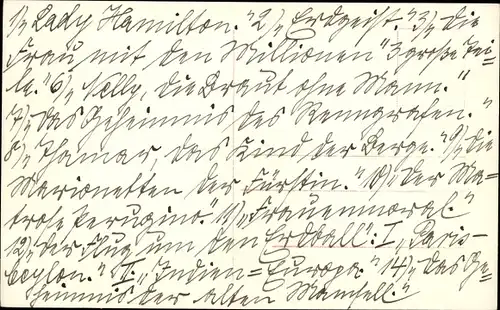 1) „Lady Hamilton.“ 2) „Erdgeist.“ 3) „Die
Frau mit den Millionen“ 3 große Tei-
le.“ 6) „Nelly, die Braut ohne Mann.“
7) „Das Geheimnis des Renngrafen.“
8) „Thamar, das Kind der Berge.“ 9) „Die
Marionetten der Fürstin.“ 10) „Der Ma-
trose Perugino.“ 11) „Frauenmoral.“
12) „Der Flug um den Erdball“: I „Paris-
Ceylon.“ II. „Indien=Europa.“ 14) „Das Ge-
heimnis der alten Mamsell.“